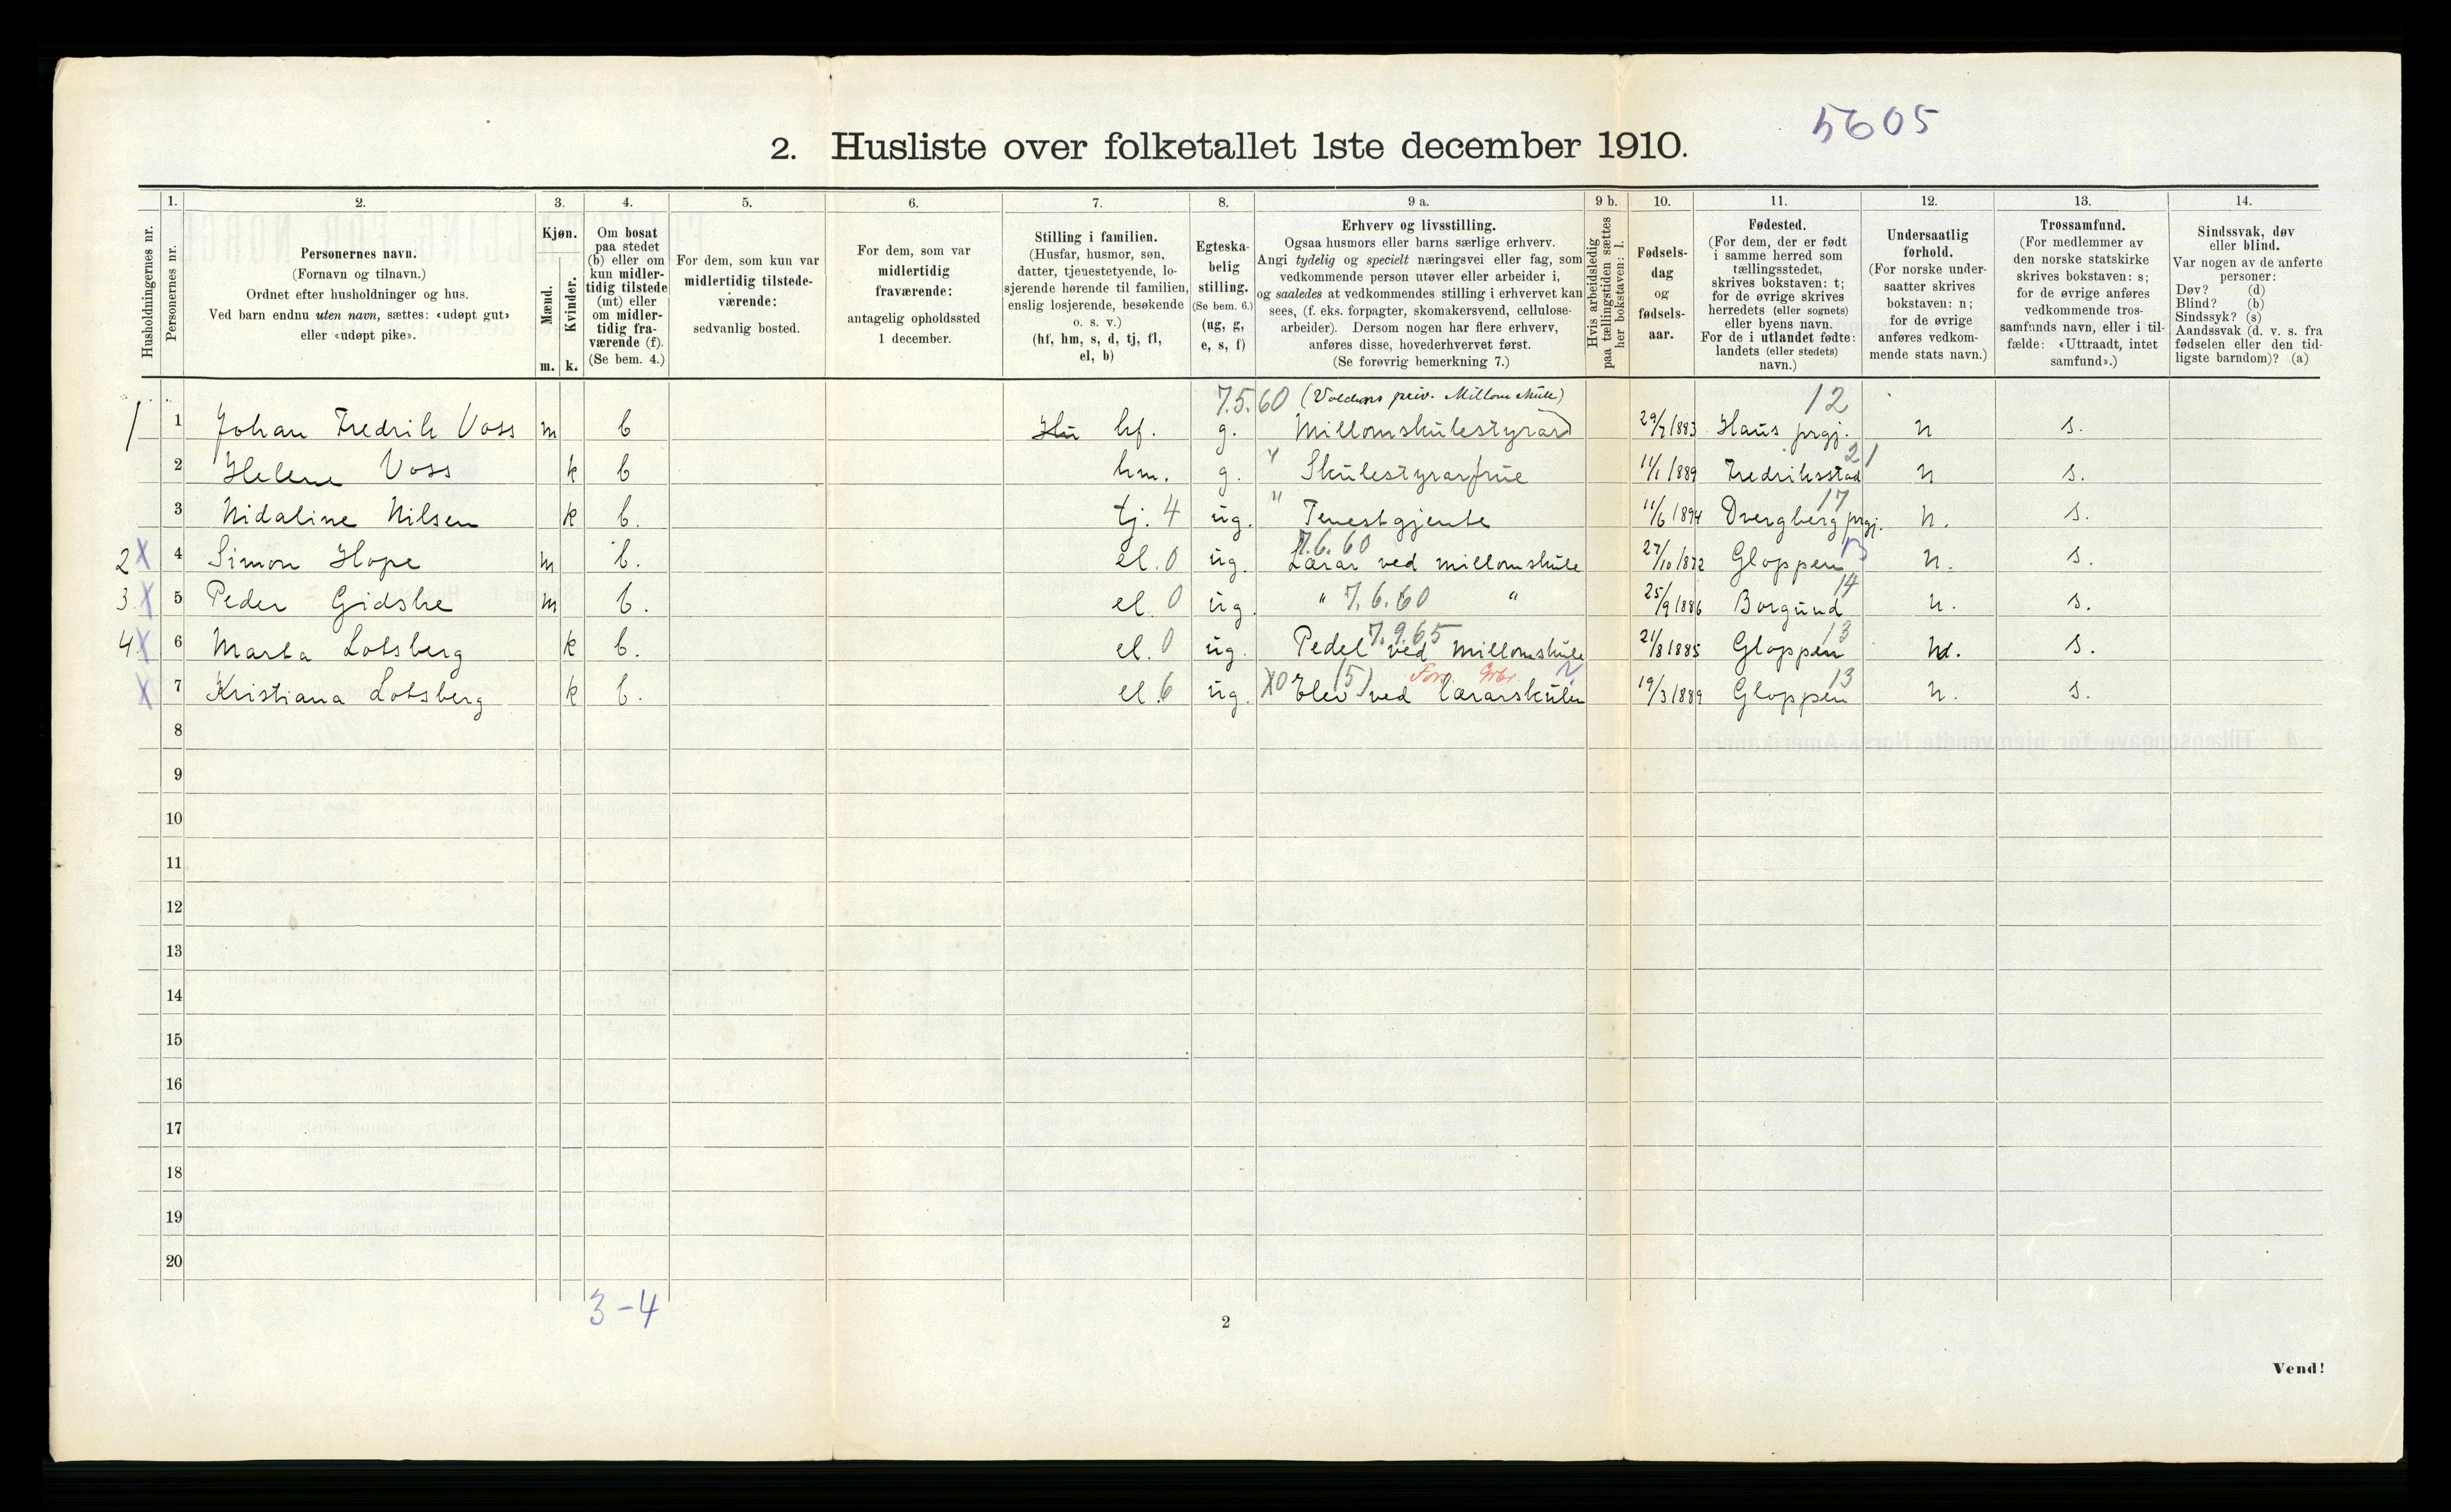 5605
2. Husliste over folketallet 1ste december 1910.
Husholdningernes nr.
1. Personernes nr.
2. Personernes navn. (Fornavn og tilnavn.) Ordnet efter husholdninger og hus. Ved barn endnu uten navn, sættes: «udøpt gut» eller «udøpt pike».
3. Kjøn. Mænd. m. Kvinder. k.
4. Om bosat paa stedet (b) eller om kun midlertidig tilstede (mt) eller om midlertidig fraværende (f). (Se bem. 4.)
5. For dem, som kun var midlertidig tilstedeværende: sedvanlig bosted.
6. For dem, som var midlertidig fraværende: antagelig opholdssted 1 december.
7. Stilling i familien. (Husfar, husmor, søn, datter, tjenestetyende, losjerende hørende til familien, enslig losjerende, besøkende o. s. v.) (hf, hm, s, d, tj, fl, el, b)
8. Egteskabelig stilling. (Se bem. 6.) (ug, g, e, s, f)
9 a. Erhverv og livsstilling. Ogsaa husmors eller barns særlige erhverv. Angi tydelig og specielt næringsvei eller fag, som vedkommende person utøver eller arbeider i, og saaledes at vedkommendes stilling i erhvervet kan sees, (f. eks. forpagter, skomakersvend, cellulosearbeider). Dersom nogen har flere erhverv, anføres disse, hovederhvervet først. (Se forøvrig bemerkning 7.)
9 b. Hvis arbeidsledig paa tællingstiden sættes her bokstaven: l.
10. Fødselsdag og fødselsaar.
11. Fødested. (For dem, der er født i samme herred som tællingsstedet, skrives bokstaven: t; for de øvrige skrives herredets (eller sognets) eller byens navn. For de i utlandet fødte: landets (eller stedets) navn.)
12. Undersaatlig forhold. (For norske undersaatter skrives bokstaven: n; for de øvrige anføres vedkommende stats navn.)
13. Trossamfund. (For medlemmer av den norske statskirke skrives bokstaven: s; for de øvrige anføres vedkommende trossamfunds navn, eller i tilfælde: «Uttraadt, intet samfund».)
14. Sindssvak, døv eller blind. Var nogen av de anførte personer: Døv? (d) Blind? (b) Sindssyk? (s) Aandssvak (d. v. s. fra fødselen eller den tidligste barndom)? (a)
7.5.60 (Voldens priv. Millomskule) 12
1 1 Johan Fredrik Voss m b hf. g. Millomskulestyrar 29/7 1883 Haus prgj. n s.
2 Helene Voss k b hm. g. " Skulestyrarfrue 11/1 1889 Fredriksstad 21 n s.
3 Nidaline Nilsen k b. tj. 4 ug. " Tenestgjente 11/6 1894 Dvergberg prgj. 17 n. s.
2 X 4 Simon Hope m b. el. 0 ug. 7.6.60 Lærar ved millomskule 27/10 1872 Gloppen 13 n. s.
3 X 5 Peder Gidske m b. el. 0 ug. " 7.6.60 " 25/9 1886 Borgund 14 n. s.
4 X 6 Marta Lotsberg k b. el. 0 ug. Pedel 7.9.65 ved millomskule 21/8 1885 Gloppen 13 n. s.
X 7 Kristiana Lotsberg k b. el. 6 ug. X0 Elev (5) ved lærarskulen 19/3 1889 Gloppen 13 n. s.
8
9
10
11
12
13
14
15
16
17
18
19
20
3-4
2
Vend!